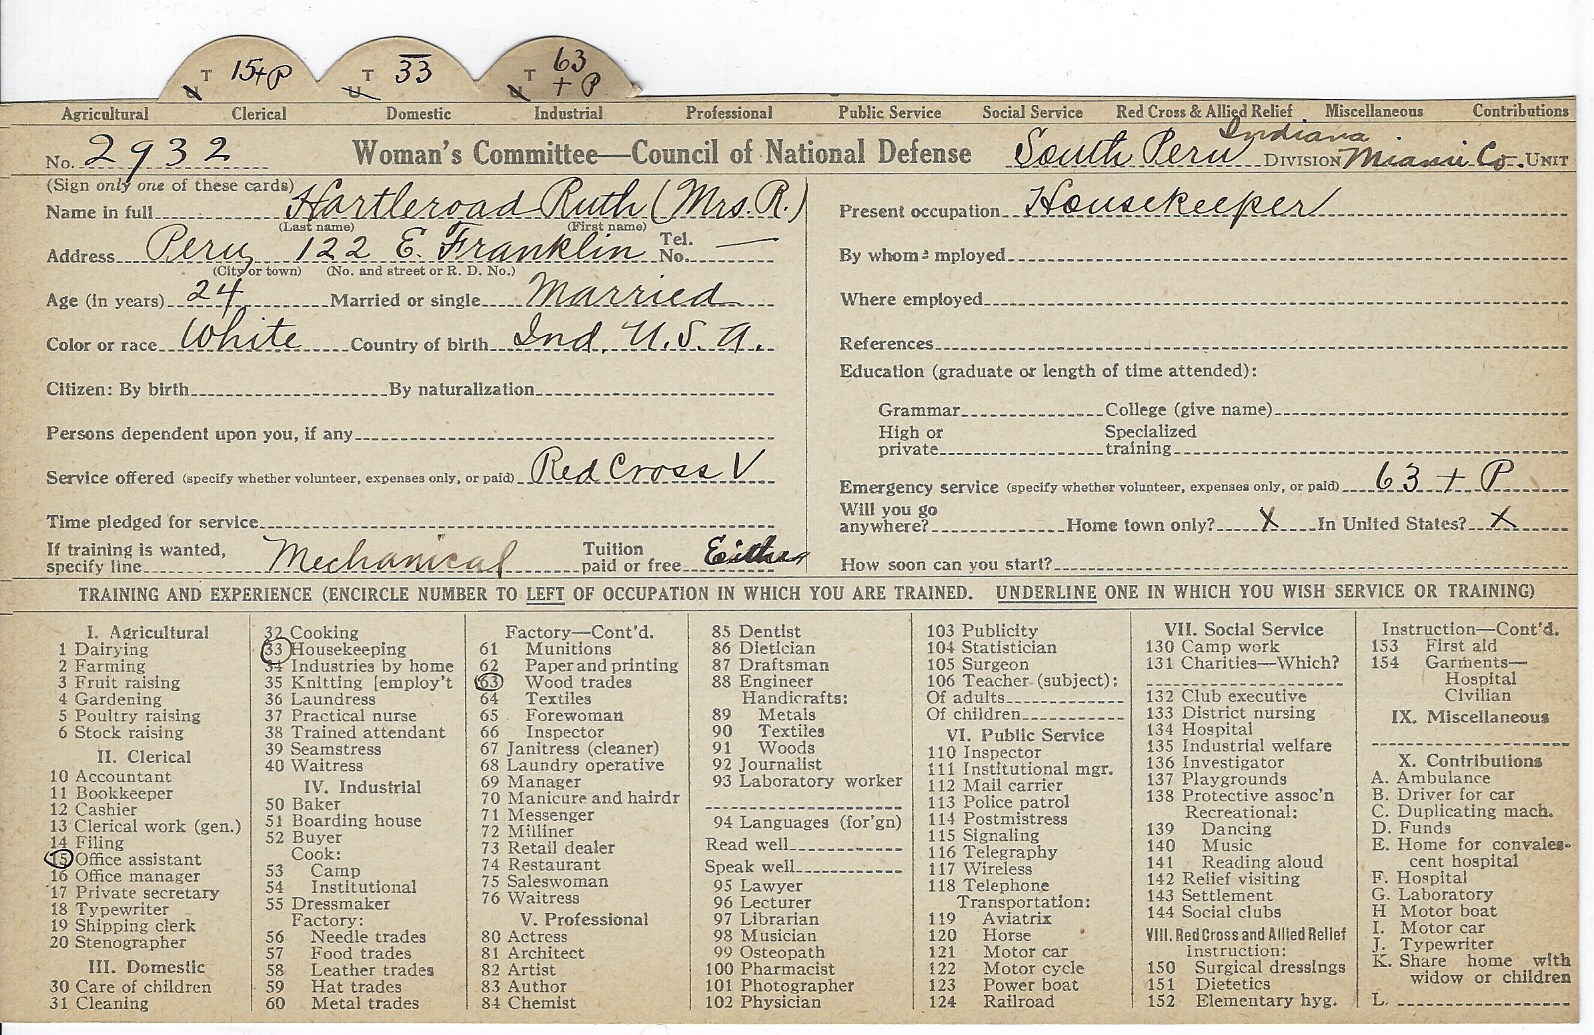 T 15+P T 33 T 63
U U U + P
Agricultural Clerical Domestic Industrial Professional Public Service Social Service Red Cross & Allied Relief Miscellaneous Contributions
No. 2932 Woman's Committee—Council of National Defense South Peru Indiana DIVISION Miami Co. UNIT
(Sign only one of these cards)
Name in full Hartleroad Ruth (Mrs. R.)
(Last name) (First name)
Address Peru 122 E. Franklin Tel. No. —
(City or town) (No. and street or R. D. No.)
Age (in years) 24 Married or single Married
Color or race White Country of birth Ind. U.S.A.
Citizen: By birth By naturalization
Persons dependent upon you, if any
Service offered (specify whether volunteer, expenses only, or paid) Red Cross V
Time pledged for service
If training is wanted, specify line Mechanical Tuition paid or free Either
Present occupation Housekeeper
By whom mployed
Where employed
References
Education (graduate or length of time attended):
Grammar College (give name)
High or Specialized
private training
Emergency service (specify whether volunteer, expenses only, or paid) 63 + P
Will you go
anywhere? Home town only? X In United States? X
How soon can you start?
TRAINING AND EXPERIENCE (ENCIRCLE NUMBER TO LEFT OF OCCUPATION IN WHICH YOU ARE TRAINED. UNDERLINE ONE IN WHICH YOU WISH SERVICE OR TRAINING)
I. Agricultural
1 Dairying
2 Farming
3 Fruit raising
4 Gardening
5 Poultry raising
6 Stock raising
II. Clerical
10 Accountant
11 Bookkeeper
12 Cashier
13 Clerical work (gen.)
14 Filing
15 Office assistant
16 Office manager
17 Private secretary
18 Typewriter
19 Shipping clerk
20 Stenographer
III. Domestic
30 Care of children
31 Cleaning
32 Cooking
33 Housekeeping
34 Industries by home
35 Knitting [employ't
36 Laundress
37 Practical nurse
38 Trained attendant
39 Seamstress
40 Waitress
IV. Industrial
50 Baker
51 Boarding house
52 Buyer
Cook:
53 Camp
54 Institutional
55 Dressmaker
Factory:
56 Needle trades
57 Food trades
58 Leather trades
59 Hat trades
60 Metal trades
Factory—Cont'd.
61 Munitions
62 Paper and printing
63 Wood trades
64 Textiles
65 Forewoman
66 Inspector
67 Janitress (cleaner)
68 Laundry operative
69 Manager
70 Manicure and hairdr
71 Messenger
72 Milliner
73 Retail dealer
74 Restaurant
75 Saleswoman
76 Waitress
V. Professional
80 Actress
81 Architect
82 Artist
83 Author
84 Chemist
85 Dentist
86 Dietician
87 Draftsman
88 Engineer
Handicrafts:
89 Metals
90 Textiles
91 Woods
92 Journalist
93 Laboratory worker
94 Languages (for'gn)
Read well
Speak well
95 Lawyer
96 Lecturer
97 Librarian
98 Musician
99 Osteopath
100 Pharmacist
101 Photographer
102 Physician
103 Publicity
104 Statistician
105 Surgeon
106 Teacher (subject):
Of adults
Of children
VI. Public Service
110 Inspector
111 Institutional mgr.
112 Mail carrier
113 Police patrol
114 Postmistress
115 Signaling
116 Telegraphy
117 Wireless
118 Telephone
Transportation:
119 Aviatrix
120 Horse
121 Motor car
122 Motor cycle
123 Power boat
124 Railroad
VII. Social Service
130 Camp work
131 Charities—Which?
132 Club executive
133 District nursing
134 Hospital
135 Industrial welfare
136 Investigator
137 Playgrounds
138 Protective assoc'n
Recreational:
139 Dancing
140 Music
141 Reading aloud
142 Relief visiting
143 Settlement
144 Social clubs
VIII. Red Cross and Allied Relief
Instruction:
150 Surgical dressings
151 Dietetics
152 Elementary hyg.
Instruction—Cont'd.
153 First aid
154 Garments—
Hospital
Civilian
IX. Miscellaneous
X. Contributions
A. Ambulance
B. Driver for car
C. Duplicating mach.
D. Funds
E. Home for convales-
cent hospital
F. Hospital
G. Laboratory
H Motor boat
I. Motor car
J. Typewriter
K. Share home with
widow or children
L.